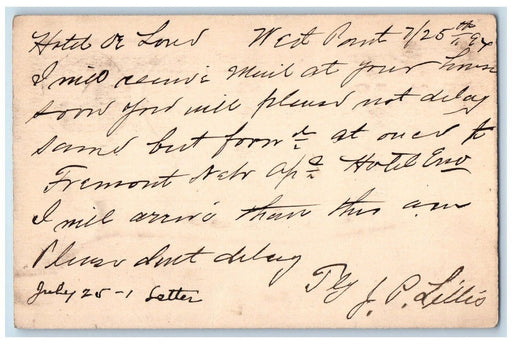 Hotel De Lord West Point 7/25th 94
I will receive mail at your house
soon you will please not delay
same but forwd at once to
Fremont Nebr c/o Hotel Eno
I will arrive there this am
Please dont delay
July 25-1 Letter Tly J. P. Lillis